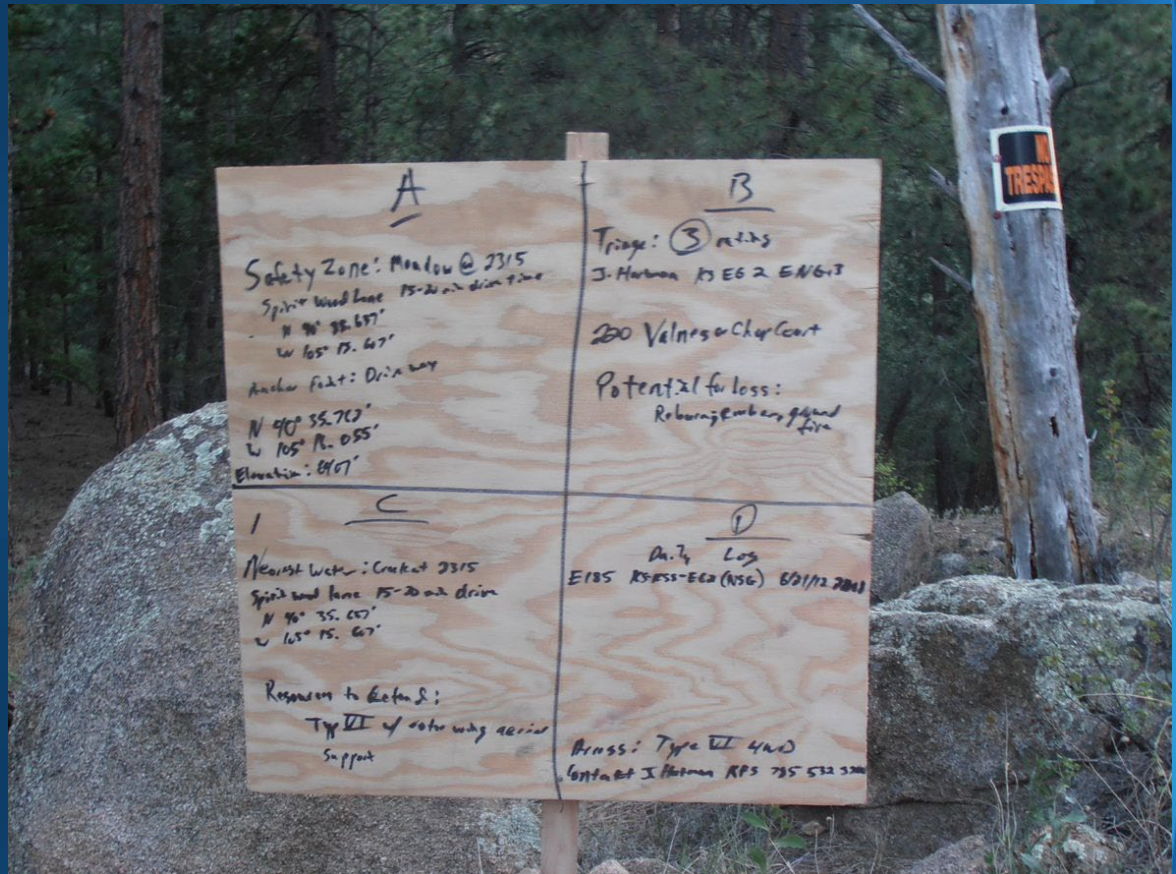 A
Safety Zone: Meadow @ 2315
Spirit Wood Lane 15-20 min drive time
N 40° 35.657'
W 105° 15.607'
Anchor Point: Driveway
N 40° 35.762'
W 105° 055'
Elevation:
B
Triage: 3 rating
J. Hartman KS EG 2 ENG13
220 Court
Potential for loss:
ground
fire
C
Nearest Water: Creek at 2315
Spirit wood lane 15-20 min drive
N 40° 35.657'
W 105° 15. 607'
Resources to Defend:
Type VI w/ rotor wing aerial
Support
D
Daily Log
E185 (NSG) 6/21/12
Access: Type VI 4WD
Contact J Hartman 785 532
NO
TRESPAS